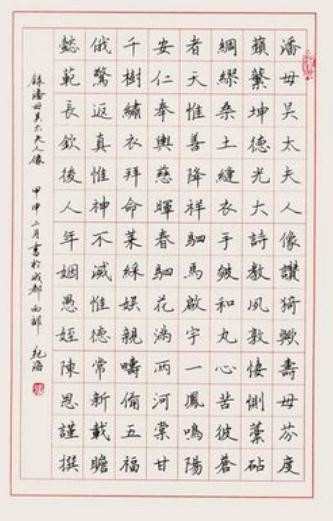 潘母吴太夫人像讚猗歟壽母芬度
蘋蘩坤德光大詩教夙敦悽惻藁砧
綢繆桑土縫衣手皴和丸心苦彼蒼
者天惟善降祥駟馬啟宇一鳳鳴陽
安仁奉輿慈暉春駟花滿两河棠甘
千樹繡衣拜命莱綵娱親疇備五福
俄驚返真惟神不滅惟德常新載瞻
懿範長欽後人年姻愚姪陳恩謹撰
録潘母吴太夫人像 甲申二月書於成都西郊 纪海